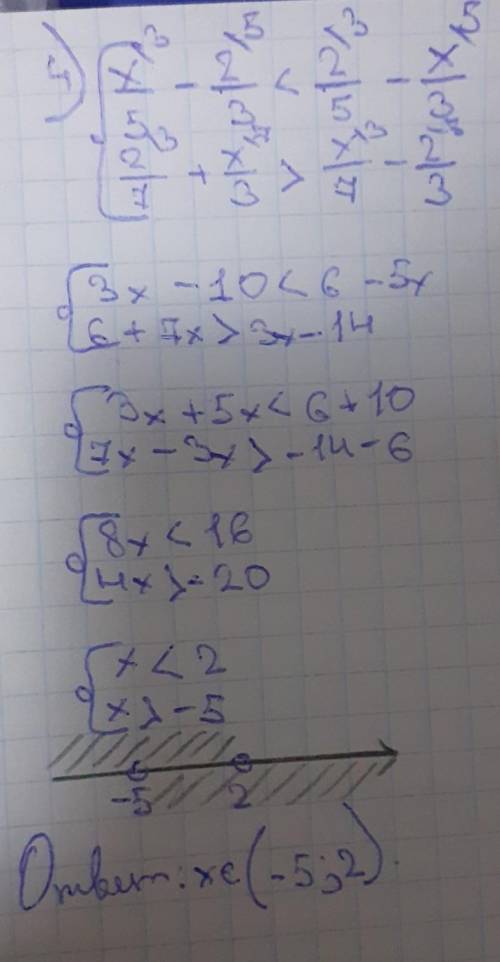 5) { x/5 ^3 - 2/3 ^5 < 2/5 ^3 - x/3 ^5
2/7 ^3 + x/3 ^7 > x/7 ^3 - 2/3 ^7
{ 3x - 10 < 6 - 5x
6 + 7x > 3x - 14
{ 3x + 5x < 6 + 10
7x - 3x > -14 - 6
{ 8x < 16
4x > -20
{ x < 2
x > -5
-5 2
Ответ: x∈(-5;2).